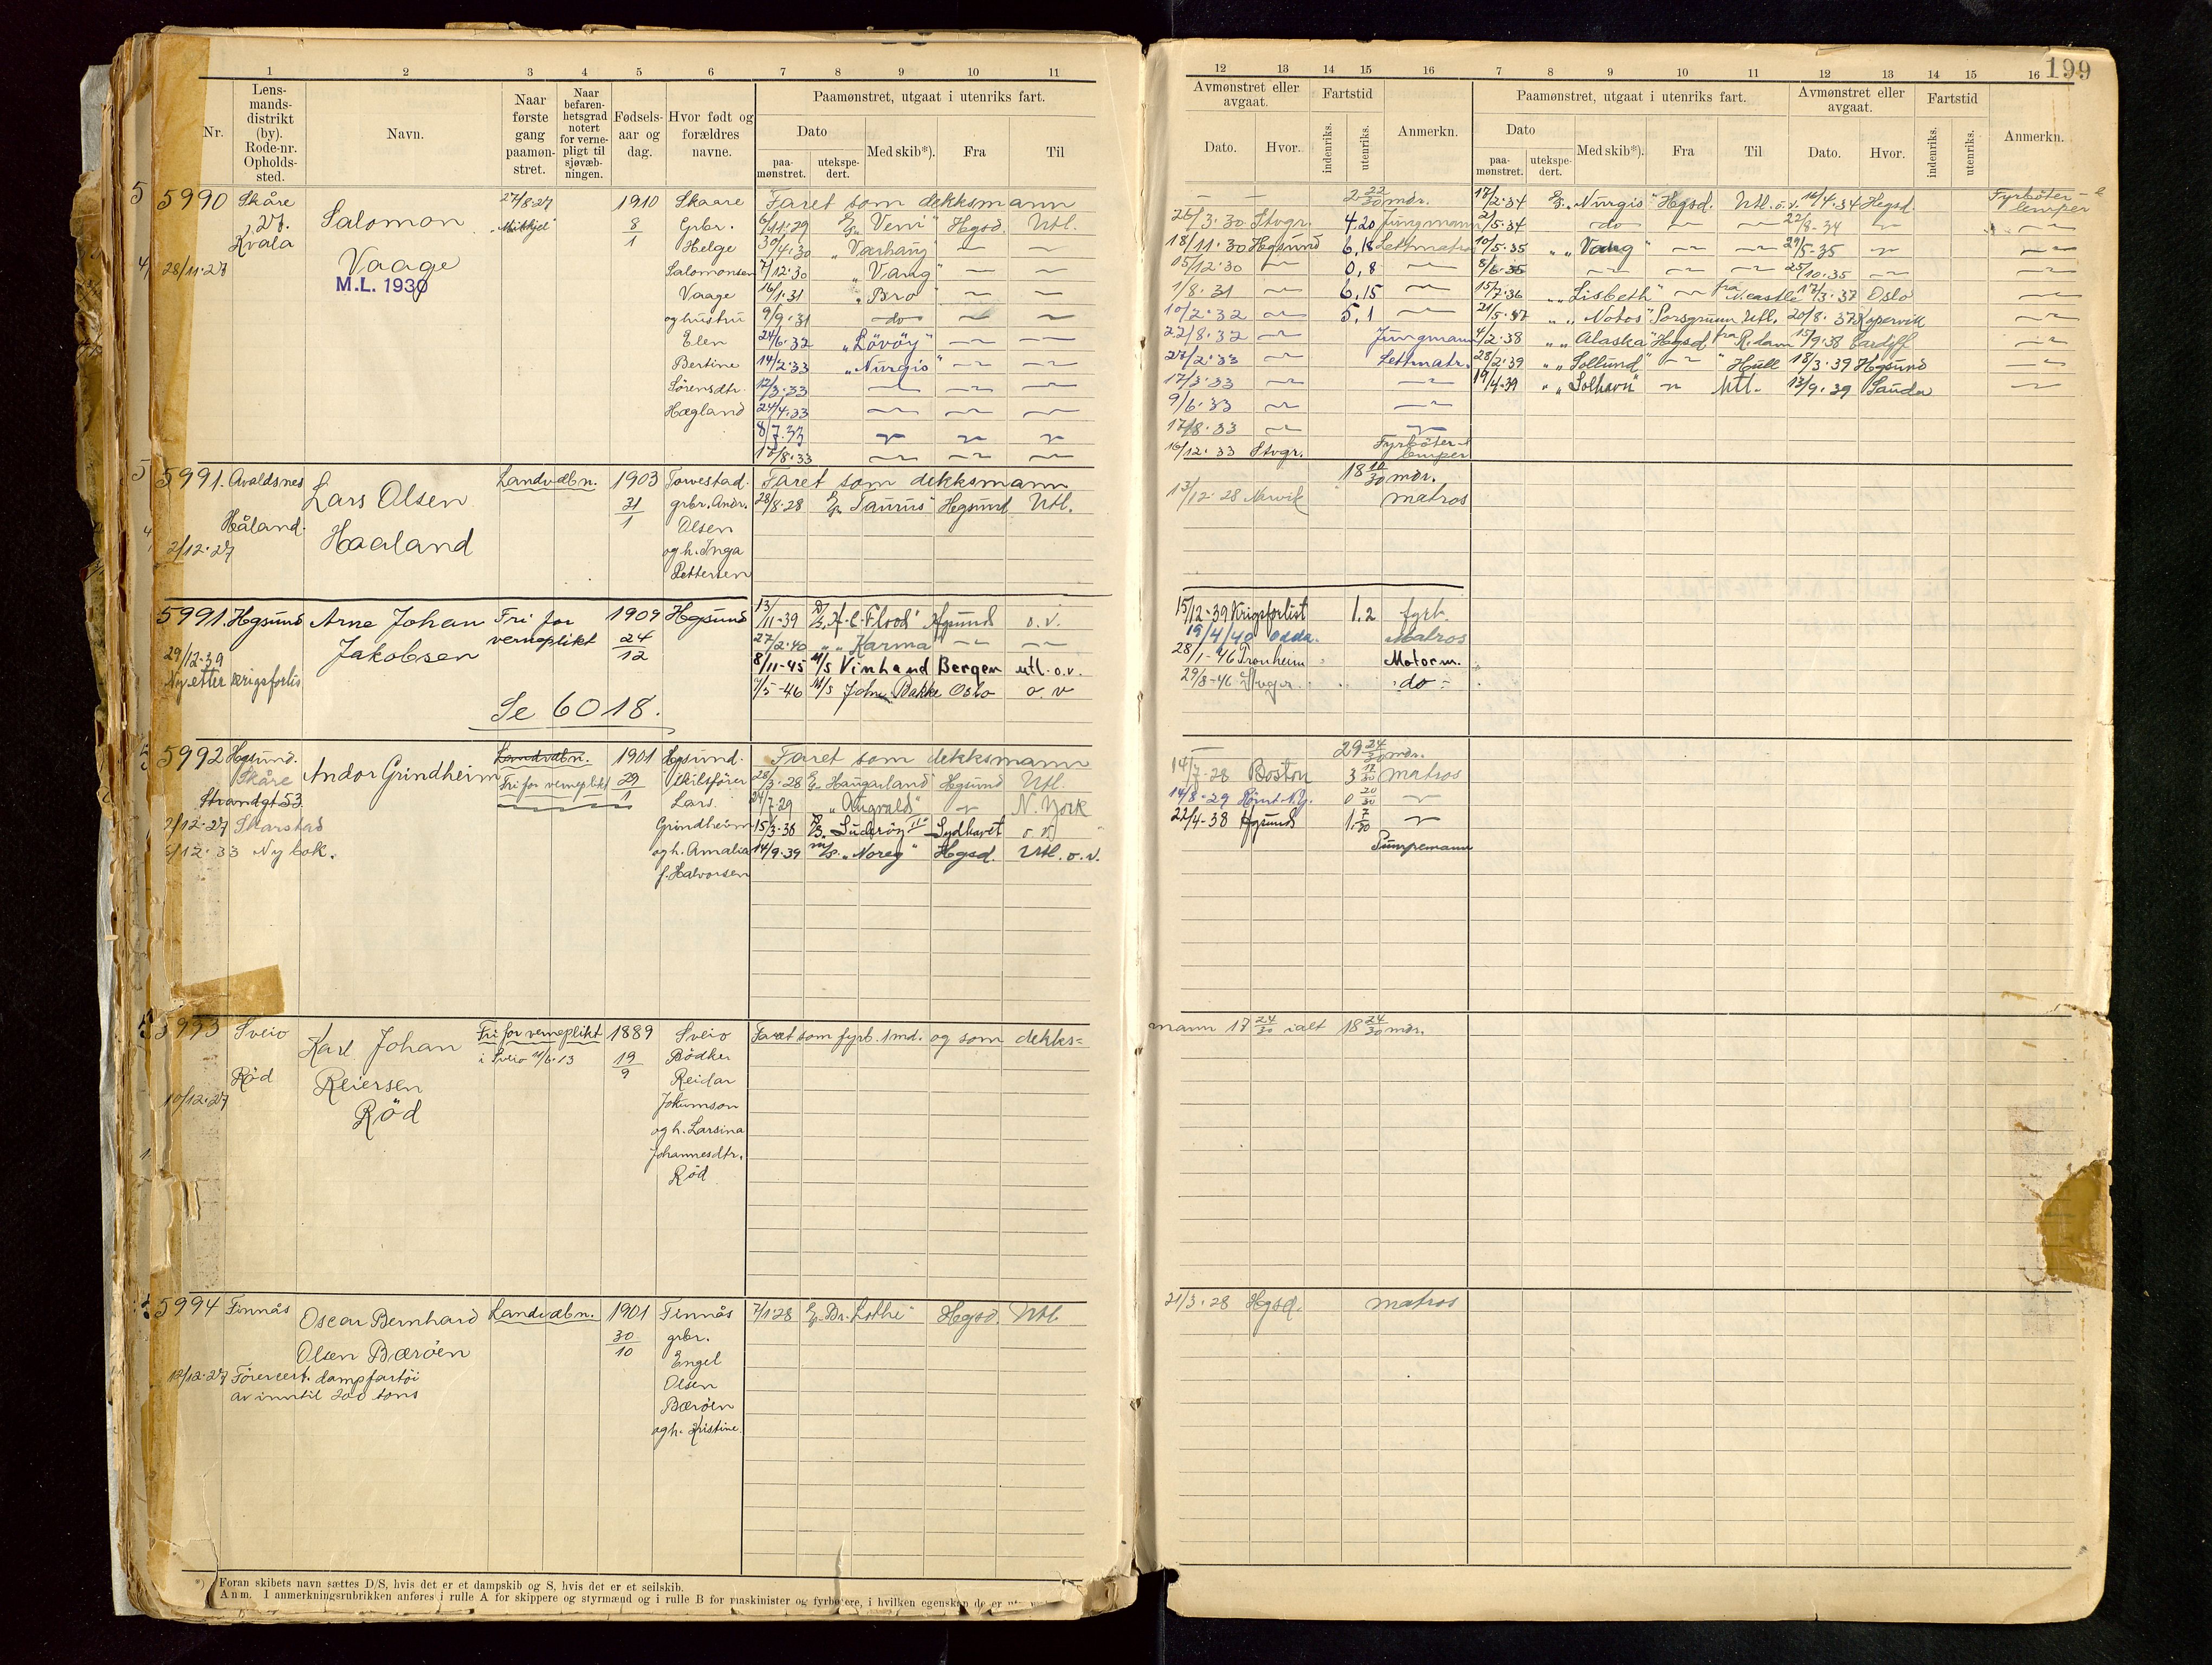 199
1 2 3 4 5 6 7 8 9 10 11
12 13 14 15 16 7 8 9 10 11 12 13 14 15 16
Nr.
Lens-
mands-
distrikt
(by).
Rode-nr.
Opholds-
sted.
Navn.
Naar
første
gang
paamøn-
stret.
Naar
befaren-
hetsgrad
notert
for verne-
pligt til
sjøvæb-
ningen.
Fødsels-
aar og
dag.
Hvor født og
forældres
navne.
Paamønstret, utgaat i utenriks fart.
Dato
paa-
mønstret.
utekspe-
dert.
Med skib*).
Fra
Til
Avmønstret eller
avgaat.
Dato.
Hvor.
Fartstid
indenriks.
utenriks.
Anmerkn.
Paamønstret, utgaat i utenriks fart.
Dato
paa-
mønstret.
utekspe-
dert.
Med skib*).
Fra
Til
Avmønstret eller
avgaat.
Dato.
Hvor.
Fartstid
indenriks.
utenriks.
Anmerkn.
5990 Skåre
Kvala
28/11.27
Salomon
Vaage
M.L. 1930
27/8.27
1910
8
1
Skaare
Grbr.
Helge
Salomonsen
Vaage
og hustru
Elen
Bertine
Sørensdtr.
Hægland
Faret som dekksmann
6/11.29 "Veni" Hgsd. Utl.
30/4.30 "Værhaug" — —
7/12.30 "Varig" — —
16/1.31 "Bro" — —
9/9.31 do — —
24/6.32 "Lövöy" — —
14/2.33 "Nurgis" — —
17/3.33 — — —
24/4.33 — — —
8/7.33 — — —
17/8.33 — — —
— — 2 22/30 mdr.
26/3.30 Stvgr. 4.20 Jungmann
18/11.30 Hgsund 6.18 Lettmatros
15/12.30 — 0,8 —
1/8.31 — 6.15
10/2.32 — 5.1
22/8.32 — Jungmann
27/2.33 — Lettmatr.
17/3.33 — —
9/6.33 — —
17/8.33 — —
16/12.33 Stvgr. Fyrböter-
lemper
17/2.34 "Nurgis" Hgsd. Utl. o.v. 14/4.34 Hgsd. Fyrböter-
lemper
21/5.34 do — — 22/8-34 — —
10/5.35 " "Varig" — — 29/5-35 — —
8/6.35 — — — 25/10.35 — —
15/7.36 " "Lisbeth" — fra N.castle 17/3.37 Oslo —
21/5.37 " "Notos" Porsgrunn Utl. 20/8.37 Kopervik —
4/2.38 " "Alaska" Hgsd. fra R.dam 15/9.38 Cardiff —
28/2.39 " "Sollund" — " Hull 18/3.39 Hgsund —
19/4.39 " "Solhavn" — Utl. 13/9.39 Sauda —
5991. Avaldsnes
Håland.
2/12.27
Lars Olsen
Haaland
Landvæbn.
1903
31
1
Torvestad.
grbr. Andr.
Olsen
og h. Inga
Pettersen
Faret som dekksmann
28/8.28 "Taurus" Hgsund Utl.
18 10/30 mdr.
13/12.28 Narvik matros
5991. Hgsund
29/12.39
Ny etter krigsforlis
Arne Johan
Jakobsen
Fri for
verneplikt
1909
24
12
Hgsund
Se 6018.
13/11-39 "A.C. Flood" Hgsund o.v.
27/2.40 " "Karma — —
8/11-45 M/S Vinland Bergen utl. o.v.
7/5-46 M/S John Bakke Oslo o.v
15/12-39 Krigsforlist 1.2 fyrb.
19/4/40 Odda. Matros
28/1-46 Tronheim Motorm.
29/8-46 Stvgr. do
5992 Hgsund.
Skåre
Strandgt 53.
2/12.27 Skarstad
6/12.33 Ny bok.
Andor Grindheim
Landvæbn.
Fri for verneplikt
1901
29
1
Hgsund.
Skibsfører
Lars.
Grindheim
og h. Amalia
f. Halvorsen
Faret som dekksmann
28/3.28 "Haugarland" Hgsund Utl.
24/7.29 "Augvald" — N. York
15/3-38 "Suderöy II" Sydhavet o.v
14/9.39 M/S. "Noreg" Hgsd. Utl. o.v.
29 24/30 mdr.
14/7.28 Boston 3 17/30 matros
14/8.29 0 20/30 —
22/4-38 Hgsund 1. 7/30 —
Pumpemann
5993 Sveio
Röd
10/12.27
Karl Johan
Reiersen
Röd
Fri for verneplikt
i Sveio 11/6.13
1889
19
9
Sveio
Bödker
Reidar
Jokumson
og h. Larsina
Johannesdtr.
Röd
Faret som fyrb. 1 md. og som dekks=
mann 17 24/30 ialt 18 24/30 mdr.
5994 Finnås
Oscar Bernhard
Olsen Bæröen
17/12.27 Förercert. dampfartöi
av inntil 200 tons
Landvæbn.
1901
30
10
Finnås
grbr.
Engel
Olsen
Bæröen
og h. Kristine.
7/1.28 "Br. Lothe" Hgsd. Utl
21/3.28 Hgsd. matros
*) Foran skibets navn sættes D/S, hvis det er et dampskib og S, hvis det er et seilskib.
Anm. I anmerkningsrubrikken anføres i rulle A for skippere og styrmænd og i rulle B for maskinister og fyrbøtere, i hvilken egenskap de er